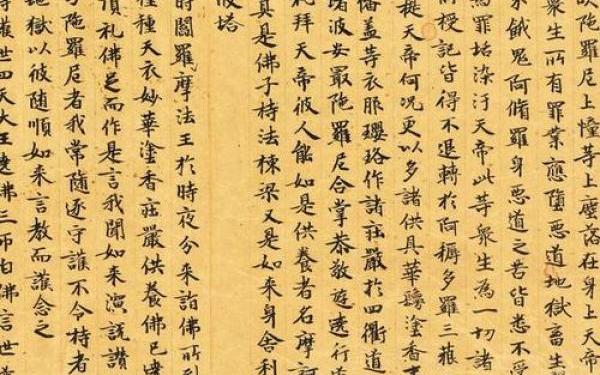 陀羅尼上幢等上塵落在身上天帝
眾生所有罪業應墮惡道地獄畜生
餓鬼阿脩羅身惡道之苦皆悉不受
為罪垢染汙天帝此等眾生為一切諸
授記皆得不退轉於阿耨多羅三藐
提天帝何況更以多諸供具華鬘塗香
幡蓋等衣服瓔珞作諸莊嚴於四衢道
堵波安置陀羅尼合掌恭敬旋遶行道
礼拜天帝彼人能如是供養者名摩訶
真是佛子持法棟梁又是如來身舍利
波塔
時閻羅摩法王於時夜分來詣佛所到
種種天衣妙華塗香莊嚴供養佛已遶
頂礼佛足而作是言我聞如來演說讚
陀羅尼者我常隨逐守護不令持者
地獄以彼隨順如來言教而護念之
護世四天大王遶佛三帀白佛言世